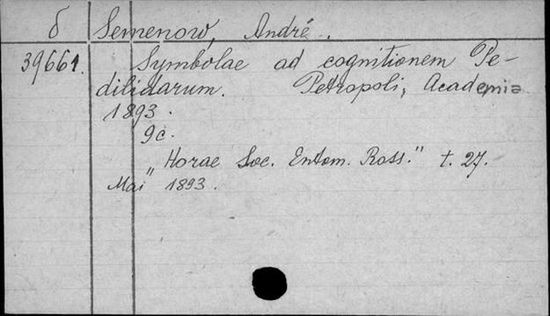 б Semenow, André.
39661. Symbolae ad cognitionem Pe-
dilidarum. Petropoli, Academia
1893.
9c.
"Horae Soc. Entom. Ross." t. 27.
Mai 1893.